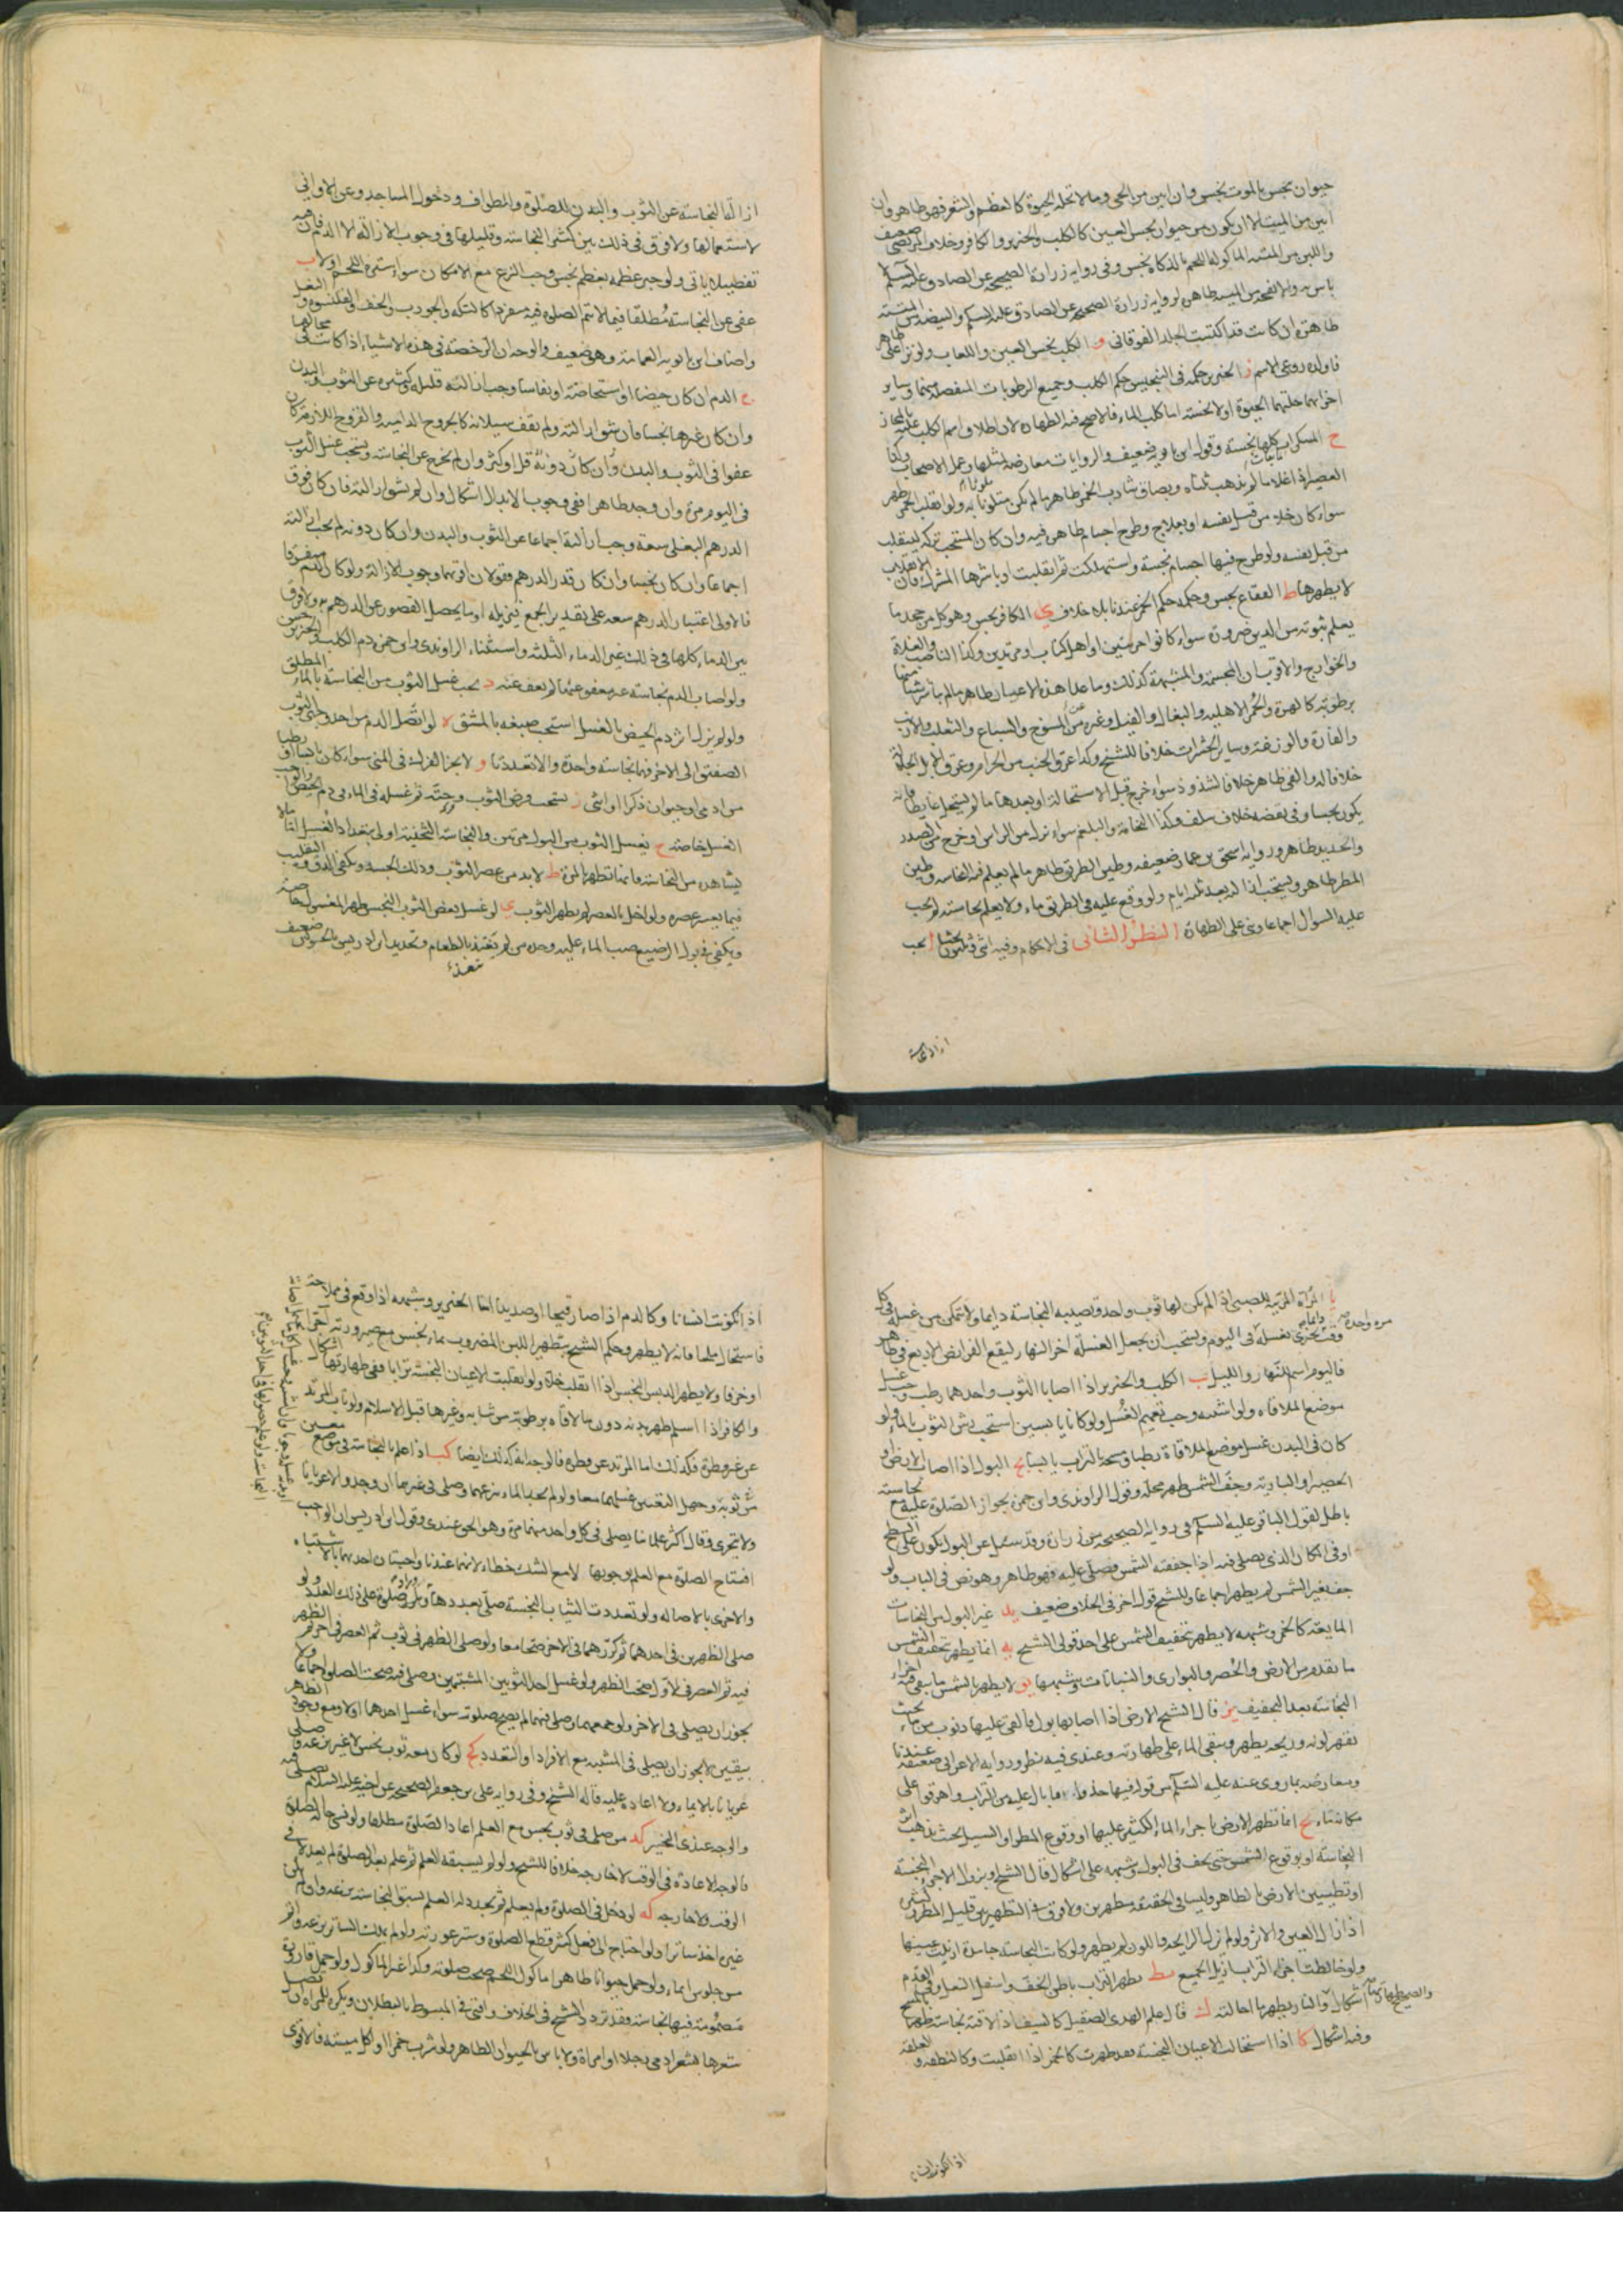 حيوان نجس بالموت نجس وان ابين من الحي وما لا تحله الحيوة كالعظم والشعر فهو طاهر وان
ابين من الميت الا ان يكون من حيوان نجس العين كالكلب والخنزير والكافر وخلاف المرتضى ضعيف
واللبن من الميتة الماكولة اللحم بالذكاة نجس وفي رواية زرارة الصحيحة عن الصادق عليه السلم لا
باس به والانفحة من الميتة طاهرة لرواية زرارة الصحيحة عن الصادق عليه السلم والبيضة من الميتة
طاهرة ان كانت قد اكتست الجلد الفوقاني و الكلب نجس العين واللعاب ولو نزا على طاهر
فاولده روعي الاسم ز الخنزير حكمه في التنجيس حكم الكلب وجميع الرطوبات المنفصلة منهما وساير
اجزائهما حلتها الحيوة اولا نجسة اما كلب الماء فالاصح فيه الطهارة لان اطلاق اسم الكلب عليه بالمجاز
ح المسكرات كلها نجسة وقول ابن بابويه ضعيف والروايات معارضة بمثلها وعمل الاصحاب وكذا
العصير اذا غلا ما لم يذهب ثلثاه وبصاق شارب الخمر طاهر ما لم يكن متلونا به ولو انقلب الخمر طهر
سواء كان خلا من قبل نفسه او بعلاج وطرح اجسام طاهرة فيه وان كان المستحب تركه لينقلب
من قبل نفسه ولو طرح فيها اجسام نجسة واستهلكت ثم انقلبت او باشرها المشرك فان الانقلاب
لا يطهرها ط الفقاع نجس وحكمه حكم الخمر عندنا بلا خلاف ي الكافر نجس وهو كل من جحد ما
يعلم ثبوته من الدين ضرورة سواء كانوا حربيين او اهل كتاب او مرتدين وكذا الناصب والغلاة
والخوارج والاقرب ان المجسمة والمشبهة كذلك وما عدا هذه الاعيان طاهر ما لم باشر شيئا منها
برطوبة كالهرة والحمر الاهلية والبغال والفيل وغيره من المسوخ والسباع والثعلب والارنب
والفارة والوزغة وساير الحشرات خلافا للشيخ وكذا عرق الجنب من الحرام وعرق الابل الجلالة
خلافا له والقي طاهر خلافا لشذوذ سواء خرج قبل الاستحالة او بعدها ما لم يستحل غايطا فانه
يكون نجسا وفي بعضه خلاف سلف وكذا النخامة والبلغم سواء نزل من الراس او خرج من الصدر
والحديد طاهر ورواية اسحق بن عمار ضعيفة وطين الطريق طاهر ما لم يعلم فيه النجاسة وطين
المطر طاهر ويستحب ازالته بعد ثلثة ايام ولو وقع عليه في الطريق ماء ولا يعلم نجاسته لم يجب
عليه السوال اجماعا وبنى على الطهارة النظر الثاني في الاحكام وفيه اثنى وثلثون بحثا ا يجب
ازالة النجاسة
ازالة النجاسة عن الثوب والبدن للصلوة والطواف ودخول المساجد وعن الاواني
لاستعمالها ولا فرق في ذلك بين كثير النجاسة وقليلها في وجوب الازالة الا الدم فان فيه
تفصيلا ياتي ولو جبر عظمه بعظم نجس وجب النزع مع الامكان سواء ستره اللحم اولا ب
عفي عن النجاسة مطلقا فيما لا تتم الصلوة فيه منفردا كالتكة والجورب والخف والقلنسوة والنعل
واضاف ابن بابويه العمامة وهو ضعيف والوجه ان الرخصة في هذه الاشياء اذا كانت في محالها
ج الدم ان كان حيضا او استحاضة او نفاسا وجب ازالة قليله وكثيره عن الثوب والبدن
وان كان غيرها نجسا فان تواتر اليه ولم يقف سيلانه كالجروح الدامية والقروح اللازمة كان
عفوا في الثوب والبدن وان كان دونه قل او كثر وان لم يخرج عن النجاسة ويستحب غسل الثوب
في اليوم مرة وان وجد طاهرا ففي وجوب الابدال اشكال وان لم يتواتر اليه فان كان فوق
الدرهم البغلي سعة وجب ازالته اجماعا عن الثوب والبدن وان كان دونه لم يجب ازالته
اجماعا وان كان نجسا وان كان قدر الدرهم فقولان اقربهما وجوب الازالة ولو كان الدم متفرقا
فالاولى اعتبار الدرهم سعة على تقدير الجمع فيزيله او ما يحصل القصور عن الدرهم به ولا فرق
بين الدماء كلها في ذلك غير الدماء الثلثة واستثناء الراوندي وابن حمزة دم الكلب والخنزير حسن
ولو اصاب الدم نجاسة غير معفو عنها لم يعف عنه د يجب غسل الثوب من النجاسة بالماء المطلق
ولو لم يزل اثر دم الحيض بالغسل استحب صبغه بالمشق ه لو اتصل الدم من احد وجهي الثوب
الصفيق الى الاخر فهما نجاسة واحدة والا تعددتا و لا يجزي الفرك في المني سواء كان يابسا او رطبا
من ادمي او حيوان ذكرا او انثى ز يستحب قرض الثوب وحته ثم غسله في الماء في دم الحيض والواجب
الغسل خاصة ح يغسل الثوب من البول مرتين والنجاسة الثخينة اولى بتعداد الغسل اما ما لا
يشاهد من النجاسة فانها تطهر بالمرة ط لا بد من عصر الثوب وذلك الجسد ويكفي الدق والتقليب
فيما يعسر عصره ولو اخل بالعصر لم يطهر الثوب ي لو غسل بعض الثوب النجس طهر المغسول خاصة
ويكفي في بول الرضيع صب الماء عليه وحده من لم يغتذ بالطعام وتحديد ابن ادريس بالحولين ضعيف
يا المراة المربية للصبي اذا لم يكن لها ثوب واحد وتصيبه النجاسة دايما ولا تتمكن من غسله في كل
وقت تجتزي بغسله في اليوم ويستحب ان يجعل الغسلة اخر النهار ليقع الفرايض الاربع في طاهر
مرة واحدة
فاليوم اسم للنهار والليل يب الكلب والخنزير اذا اصابا الثوب واحدهما رطب وجب غسل
موضع الملاقاة ولو اشتبه وجب تعميم الغسل ولو كانا يابسين استحب رش الثوب بالماء ولو
كان في البدن غسل موضع الملاقاة رطبا ومسحه بالتراب يابسا يج البول اذا اصاب الارض او
الحصير او البارية وجف الشمس طهر محله وقول الراوندي وابن حمزة بجواز الصلوة عليه مع نجاسته
باطل لقول الباقر عليه السلم في رواية الصحيحة من زرارة وقد سئل عن البول يكون على السطح
او في المكان الذي يصلي فيه اذا جففته الشمس فصل عليه فهو طاهر وهو نص في الباب ولو
جف بغير الشمس لم يطهر اجماعا وللشيخ قول اخر في الخلاف ضعيف يد غير البول من النجاسات
المايعة كالخمر وشبهه لا يطهر بتجفيف الشمس على احد قولي الشيخ يه انما يطهر بتجفيف الشمس
ما تقدم من الارض والحصر والبواري والنباتات وشبهها يو لا يطهر بالشمس ما يبقى فيه اجزاء
النجاسة بعد التجفيف يز قال الشيخ الارض اذا اصابها بول فالقي عليها ذنوب من ماء بحيث
تقهر لونه وريحه يطهر ويبقى الماء على طهارته وعندي فيه نظر ورواية الاعرابي ضعيفة عندنا
ومعارضة بما روي عنه عليه السلم من قوله فيها خذوا ما بال عليه من التراب واهرقوا على
مكانه ماء يح انما تطهر الارض باجراء الماء الكثير عليها او وقوع المطر او السيل بحيث يذهب اثر
النجاسة او بوقوع الشمس حتى يجف في البول وشبهه على اشكال قال الشيخ او بزوال الاجزاء النجسة
او تطيين الارض بالطاهر وليسا في الحقيقة مطهرين ولا فرق في التطهير بين قليل المطر وكثيره
اذا زال العين والاثر ولو لم تزل الرايحة واللون لم يطهر ولو كانت النجاسة جامدة ازيلت عينها
ولو خالطت اجزاء التراب ازيل الجميع يط يطهر التراب باطن الخف واسفل النعل وفي القدم
اشكال والنار يطهر ما احالته ك قال علم الهدى الصقيل كالسيف اذا لاقته نجاسة طهر بالمسح
والصحيح طهارتها
وفيه اشكال كا اذا استحالت الاعيان النجسة فقد طهرت كالخمر اذا انقلبت وكالنطفة والعلقة
اذا تكونت
اذا تكونت انسانا وكالدم اذا صار قيحا او صديدا اما الخنزير وشبهه اذا وقع في ملاحة
فاستحال ملحا فانه لا يطهر وحكم الشيخ بتطهير اللبن المضروب بماء نجس مع صيرورته آجرا
او خزفا ولا يطهر الدبس النجس اذا انقلب خلا ولو انقلبت الاعيان النجسة ترابا ففي طهارتها اشكال
والكافر اذا اسلم طهر بدنه دون ما لاقاه برطوبة من ثيابه وغيرها قبل الاسلام ولو تاب المرتد
عن غير فطرة فكذلك اما المرتد عن فطرة فالوجه انه كذلك ايضا كب اذا علم بالنجاسة في موضع معين
من ثوبه وجهل التعيين غسلهما معا ولو لم يجد الماء نزعهما وصلى في غيرهما ان وجد والا عريانا
ولا يتحرى وقال اكثر علمائنا يصلي في كل واحد منهما مرة وهو الحق عندي وقول ابن ادريس ان الواجب
افتتاح الصلوة مع العلم بوجوبها لا مع الشك خطاء لانهما عندنا واجبتان احدهما بالاشتباه
والاخرى بالاصالة ولو تعددت الثياب النجسة صلى بعددها وزاد صلوة على ذلك العدد ولو
صلى الظهرين في احدهما ثم كررهما في الاخر صحتا معا ولو صلى الظهر في ثوب ثم العصر في اخر ثم الظهر
فيه ثم العصر في الاول صحت الظهر ولو غسل احد الثوبين المشتبهين وصلى فيه صحت الصلوة اجماعا ولا
يجوز ان يصلي في الاخر ولو جمعهما وصلى فيهما لم يصح صلوته سواء غسل احدهما اولا ومع وجود الطاهر
بيقين لا يجوز ان يصلي في المشتبه مع الافراد او التعدد كج لو كان معه ثوب نجس لا غير نزعه وصلى
عريانا بالايماء ولا اعادة عليه قاله الشيخ وفي رواية علي بن جعفر الصحيحة عن اخيه عليه السلام يصلي فيه
والوجه عندي التخيير كد من صلى في ثوب نجس مع العلم اعاد الصلوة مطلقا ولو نسي حالة الصلوة
فالوجه الاعادة في الوقت لا خارجه خلافا للشيخ ولو لم يسبقه العلم ثم علم بعد الصلوة لم يعد لا في
الوقت ولا خارجه كه لو دخل في الصلوة ولم يعلم ثم تجدد له العلم بسبق النجاسة نزعه واتم او القى
غيره اخذ ساترا ولو احتاج الى فعل كثير قطع الصلوة وستر عورته ولو لم يملك الساتر نزعه واتم
من جلوس ايماء ولو حمل حيوانا طاهرا ماكول اللحم صحت صلوته وكذا غير الماكول ولو حمل قارورة
مضمومة فيها نجاسة فقد تردد الشيخ في الخلاف وافتى في المبسوط بالبطلان ويكره للمراة ان تصل
شعرها بشعر ادمي رجلا او امراة ولا باس بالحيوان الطاهر ولو شرب خمرا او اكل ميتة فالاقوى